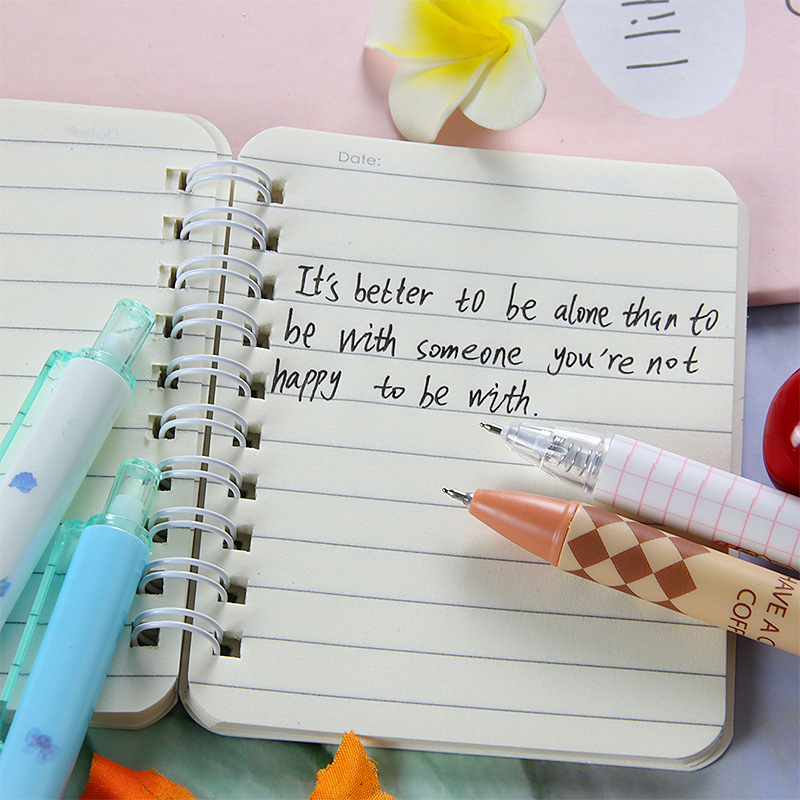 Date:
It's better to be alone than to
be with someone you're not
happy to be with.
HAVE A
COFF